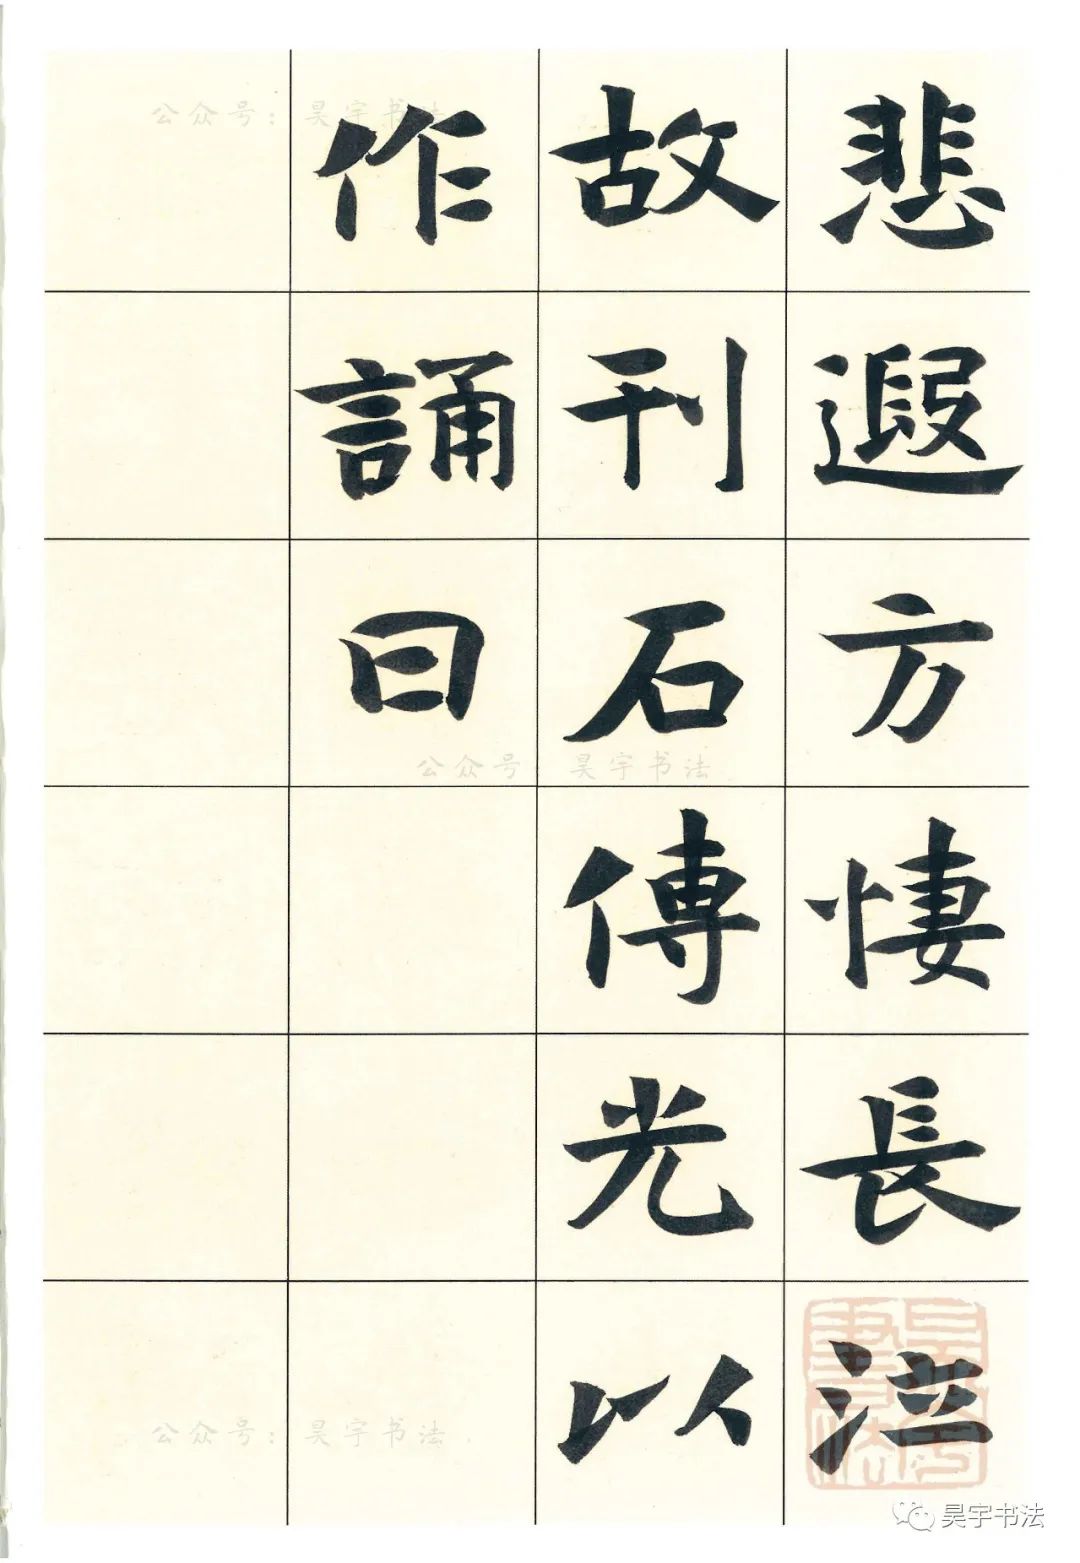 悲遐方悽長泣
故刊石傳光以
作誦曰
公众号：昊宇书法
公众号：昊宇书法
公众号：昊宇书法
昊宇书法